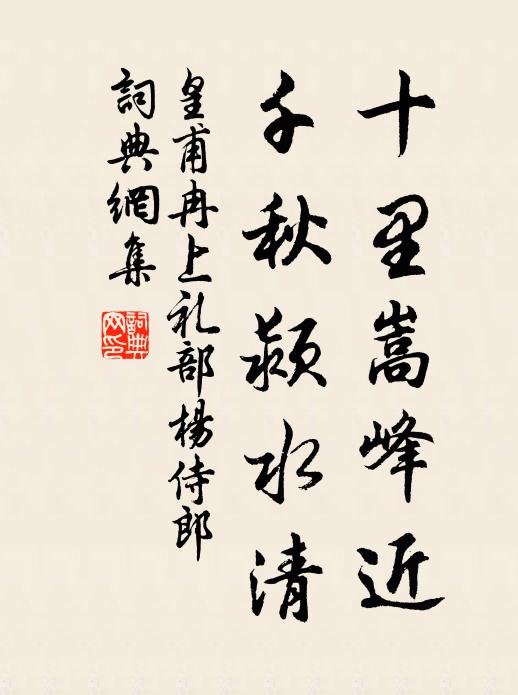 十里嵩峰近
千秋颍水清
皇甫冉上礼部楊侍郎
詞典網集
詞典网印